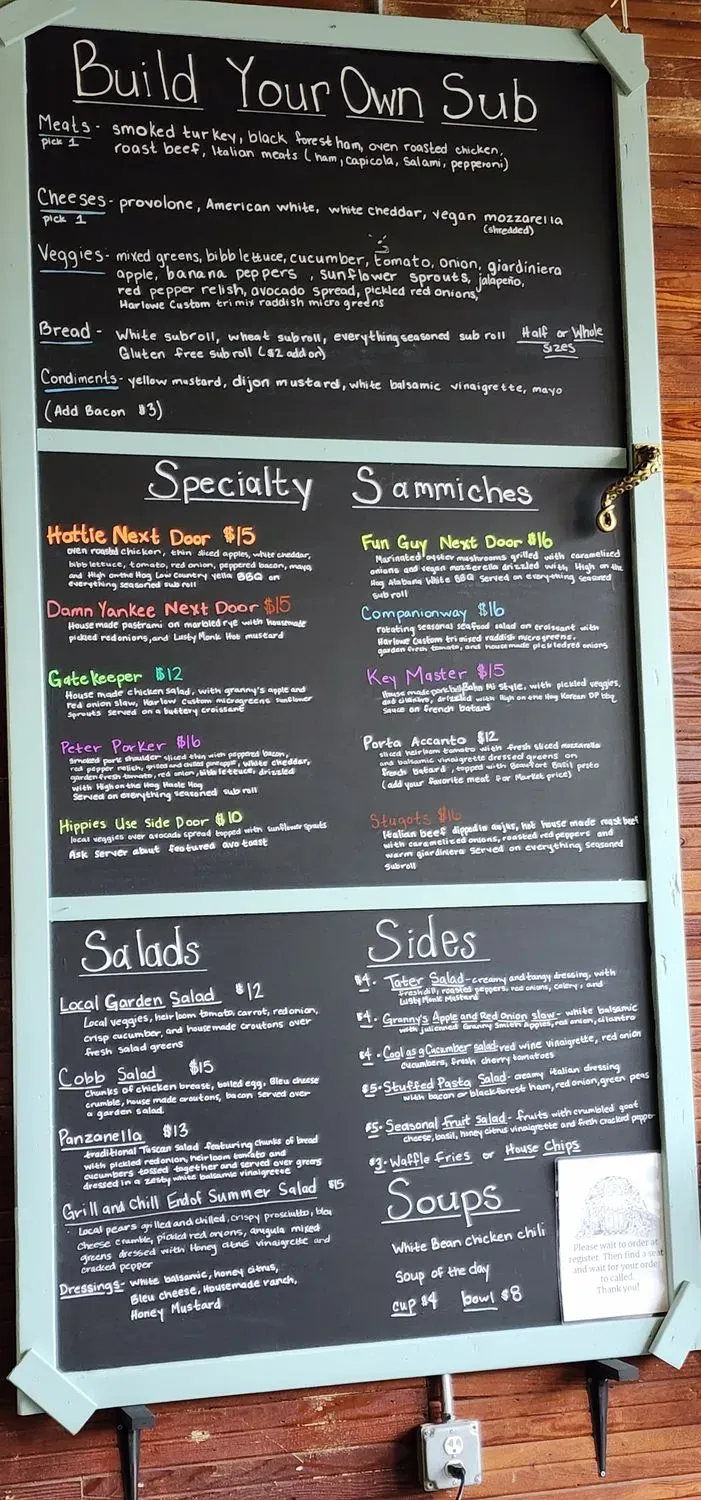 Build Your Own Sub
Meats - smoked turkey, black forest ham, oven roasted chicken,
pick 1
roast beef, Italian meats (ham, capicola, salami, pepperoni)
Cheeses - provolone, American white, white cheddar, vegan mozzarella
pick 1
(shredded)
Veggies - mixed greens, bibb lettuce, cucumber, tomato, onion, giardiniera
apple, banana peppers, sunflower sprouts, jalapeño,
red pepper relish, avocado spread, pickled red onions,
Harlowe Custom tri mix raddish micro greens
Bread - White sub roll, wheat sub roll, everything seasoned sub roll Half or Whole
Gluten free sub roll ($2 add on) Sizes
Condiments - yellow mustard, dijon mustard, white balsamic vinaigrette, mayo
(Add Bacon $3)
Specialty Sammiches
Hottie Next Door $15
oven roasted chicken, thin sliced apples, white cheddar,
bibb lettuce, tomato, red onion, peppered bacon, mayo,
and High on the Hog Low Country Yella BBQ on
everything seasoned sub roll
Damn Yankee Next Door $15
House made pastrami on marbled rye with housemade
pickled red onions, and Lusty Monk Hot mustard
Gatekeeper $12
House made chicken salad, with granny's apple and
red onion slaw, Harlow Custom microgreens sunflower
sprouts served on a buttery croissant
Peter Porker $16
smoked pork shoulder sliced thin with peppered bacon,
red pepper relish, grilled and chilled pineapple, white cheddar,
garden fresh tomato, red onion, bibb lettuce, drizzled
with High on the Hog Haole Hog
Served on everything seasoned sub roll
Hippies Use Side Door $10
local veggies over avocado spread topped with sunflower sprouts
Ask server about featured avo toast
Fun Guy Next Door $16
Marinated oyster mushrooms grilled with caramelized
onions and vegan mozzerella drizzled with High on the
Hog Alabama White BBQ Served on everything seasoned
sub roll
Companionway $16
rotating seasonal seafood salad on croissant with
Harlowe Custom tri mixed raddish microgreens,
garden fresh tomato, and house made pickled red onions
Key Master $15
House made pork belly Bahn Mi Style, with pickled veggies,
and cilantro, drizzled with High on the Hog Korean DP bbq
sauce on french batard
Porta Accanto $12
sliced heirloom tomato with fresh sliced mozzarella
and balsamic vinaigrette dressed greens on
french batard, topped with Beaufort Basil presto
(add your favorite meat for Market price)
Stugots $16
Italian beef dipped in aujus, hot house made roast beef
with caramelized onions, roasted red peppers and
warm giardiniera Served on everything seasoned
subroll
Salads
Local Garden Salad $12
Local veggies, heirloom tomato, carrot, red onion,
crisp cucumber, and housemade croutons over
fresh salad greens
Cobb Salad $15
Chunks of chicken breast, boiled egg, Bleu cheese
crumble, house made croutons, bacon served over
a garden salad
Panzanella $13
traditional Tuscan salad featuring chunks of bread
with pickled red onion, heirloom tomato and
cucumbers tossed together and served over greens
dressed in a zesty white balsamic vinaigrette
Grill and Chill End of Summer Salad $15
Local pears grilled and chilled, crispy prosciutto, bleu
cheese crumble, pickled red onions, arugula mixed
greens dressed with Honey citrus vinaigrette and
cracked pepper
Dressings - white balsamic, honey citrus,
Bleu cheese, Housemade ranch,
Honey Mustard
Sides
$4 - Tater Salad - creamy and tangy dressing, with
fresh dill, roasted peppers, red onions, celery, and
Lusty Monk Mustard
$4 - Granny's Apple and Red Onion slaw - white balsamic
with julienned Granny Smith Apples, red onion, cilantro
$4 - Cool as a Cucumber salad - red wine vinaigrette, red onion
cucumbers, fresh cherry tomatoes
$5 - Stuffed Pasta Salad - creamy italian dressing
with bacon or black forest ham, red onion, green peas
$5 - Seasonal Fruit Salad - fruits with crumbled goat
cheese, basil, honey citrus vinaigrette and fresh cracked pepper
$3 - Waffle Fries or House Chips
Soups
White Bean chicken chili
Soup of the day
cup $4 bowl $8
Please wait to order at
register. Then find a seat
and wait for your order
to called.
Thank you!